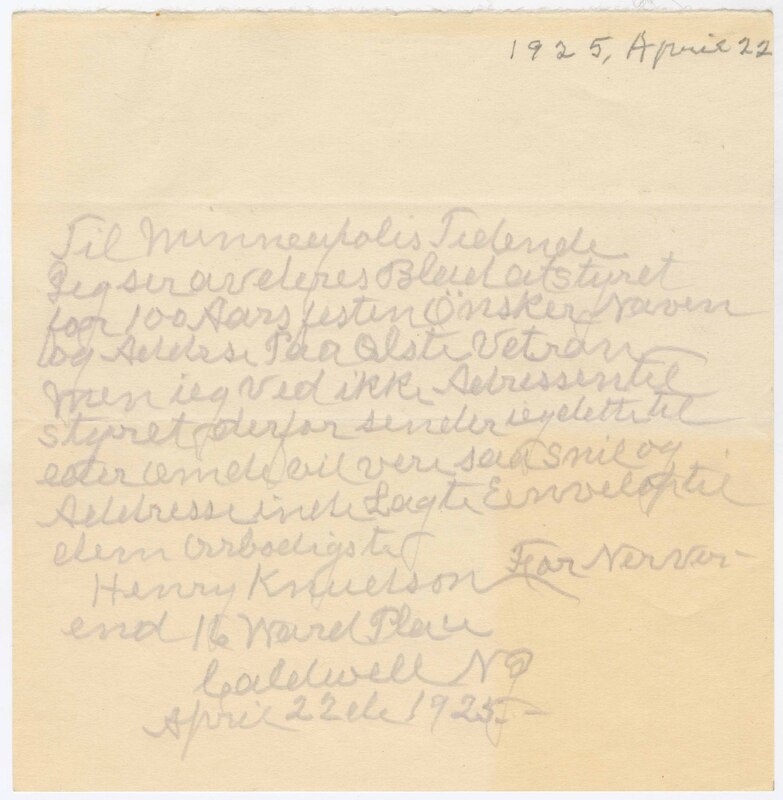 1925, April 22
Til Minneapolis Tidende
Jeg ser av deres Blad at styret
for 100 Aars festen Önsker Naven
og Addrse Paa Elste Vetran
men ieg Ved ikke Adressen til
styret derfor sender ieg dette til
eder om de vil veri saa snil og
Addresse inde Lagte Eenvelop til
dem Ærbodigst
Henry Knudson For Nerver-
end 16 Ward Place
Caldwell NJ
April 22de 1925-